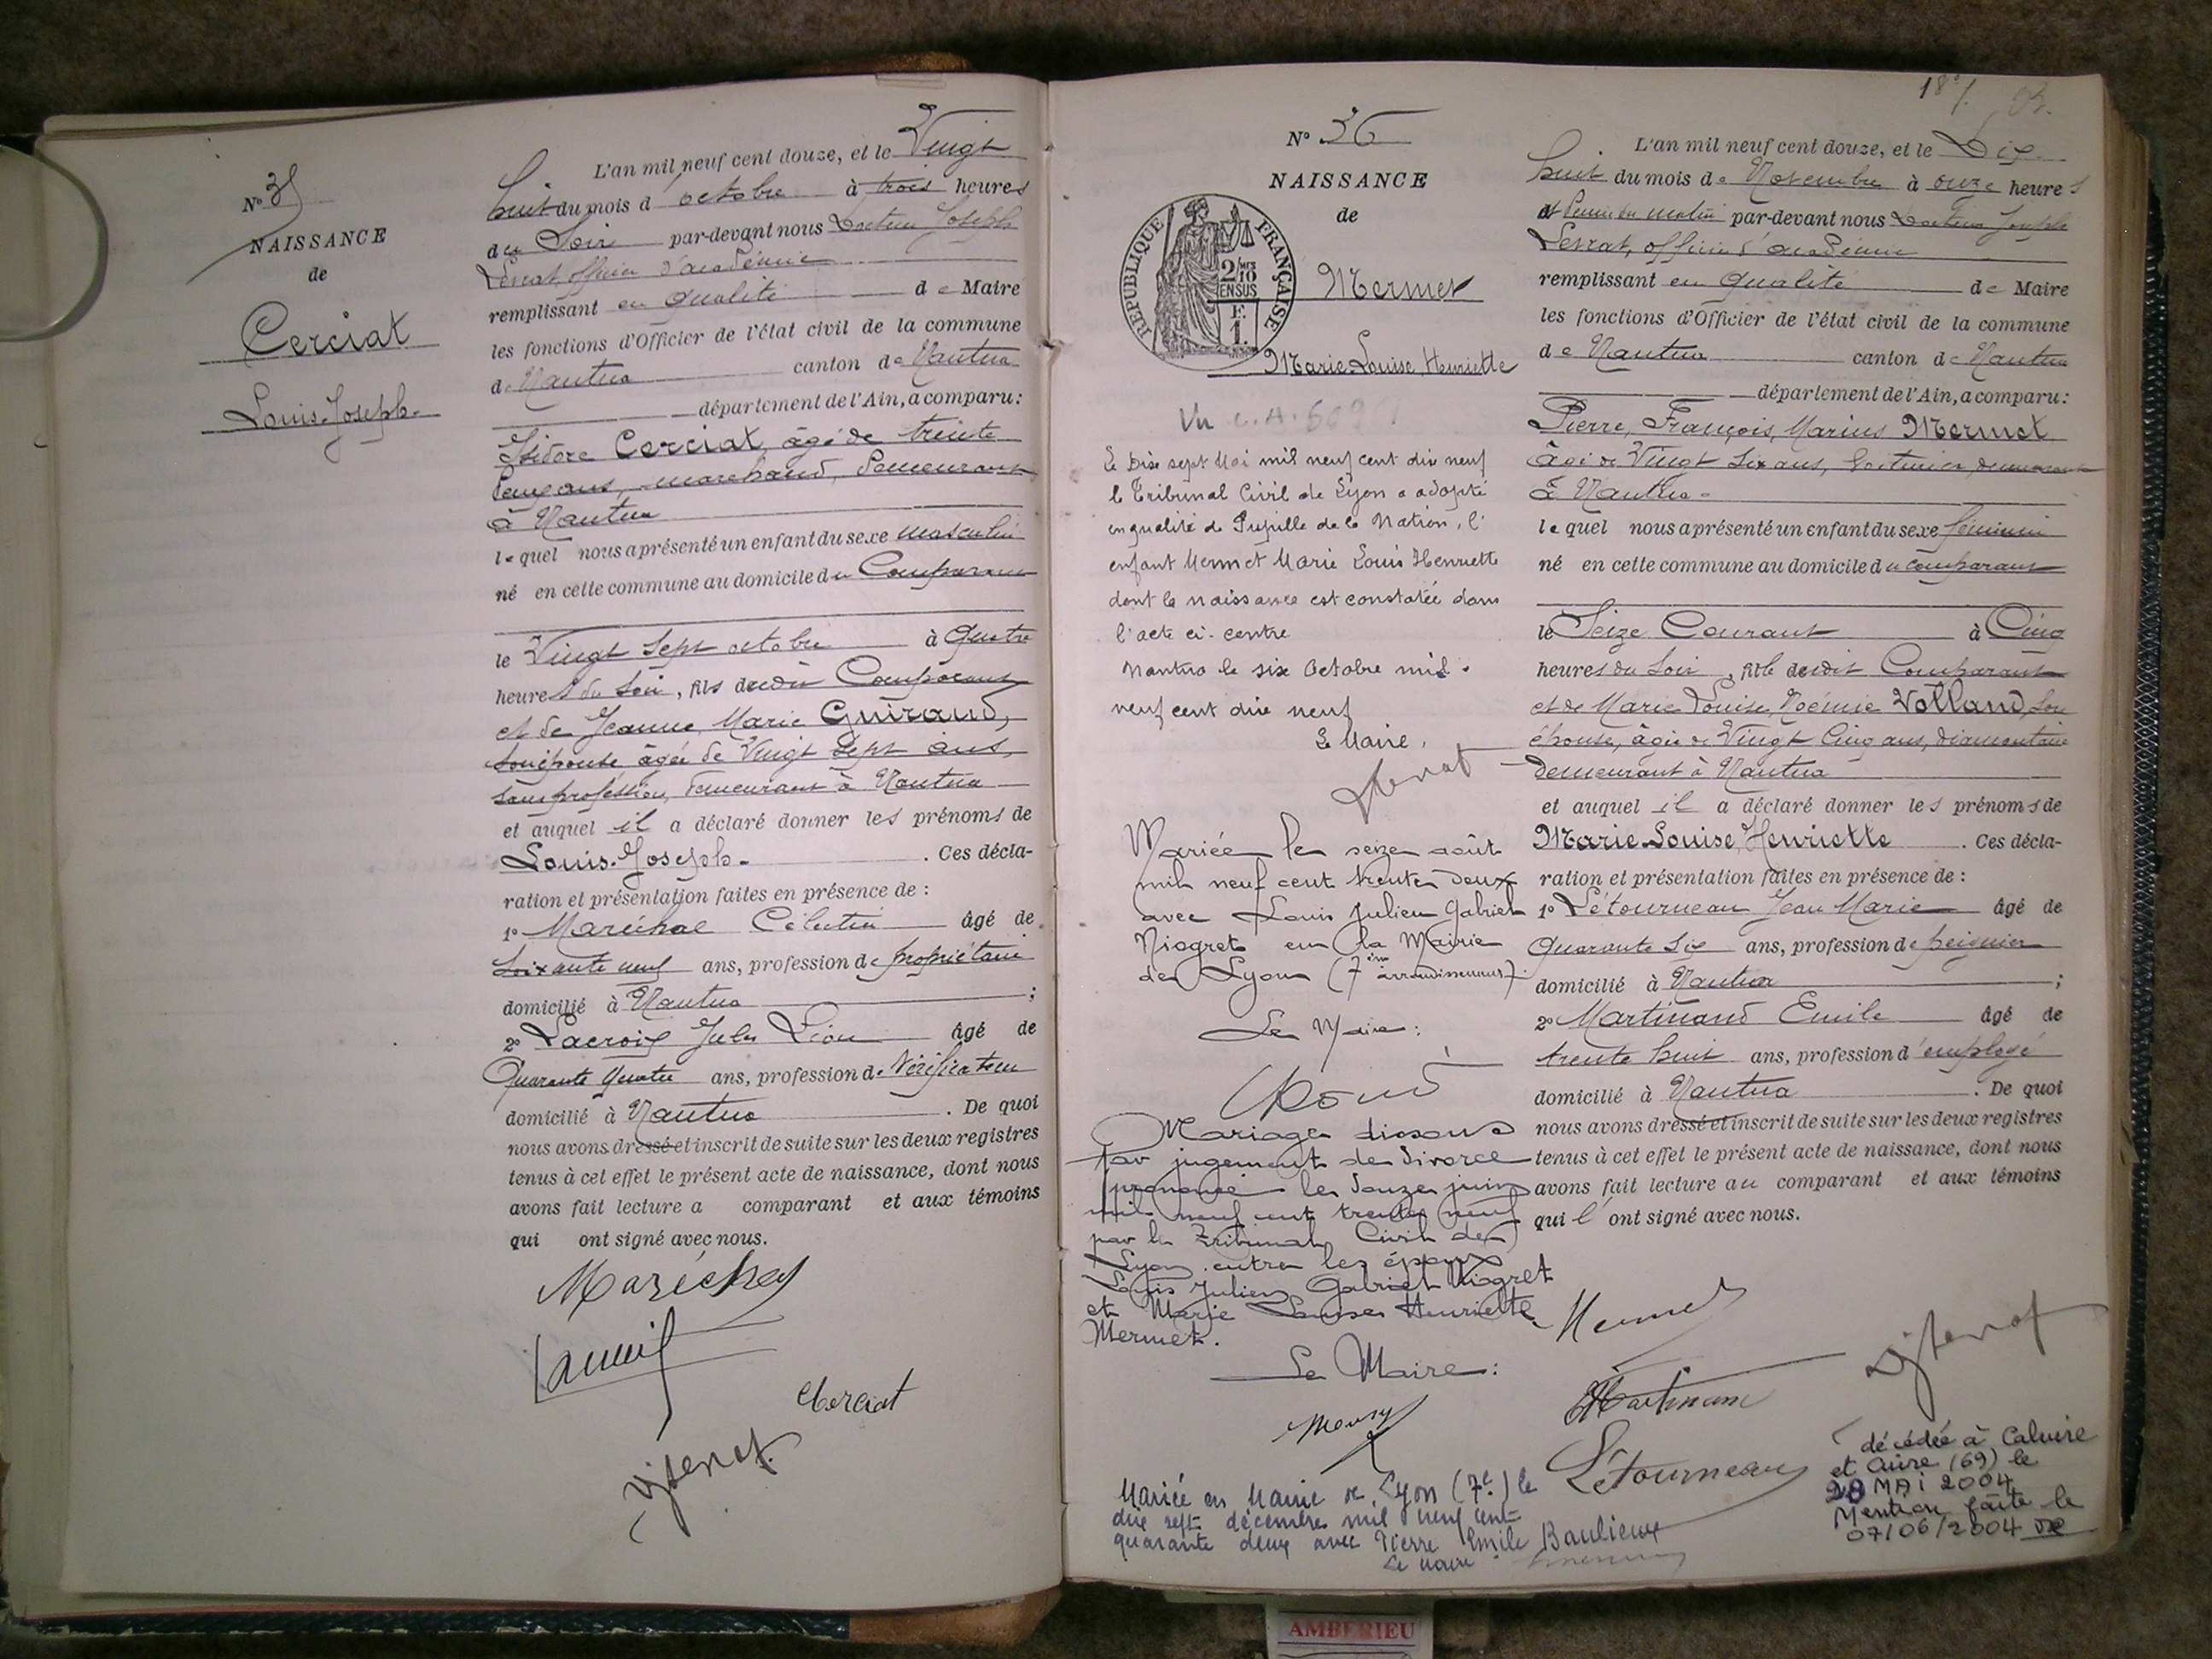 N° 35
NAISSANCE
de
Cerciat
Louis-Joseph-
L'an mil neuf cent douze, et le Vingt
huit du mois d'octobre à trois heures
du Soir par-devant nous Docteur Joseph
officier d'académie
remplissant en qualité de Maire
les fonctions d'Officier de l'état civil de la commune
de Nantua canton de Nantua
département de l'Ain, a comparu:
Isidore Cerciat, âgé de trente
ans, marchand, demeurant
à Nantua
lequel nous a présenté un enfant du sexe masculin
né en cette commune au domicile du Comparant
le Vingt sept octobre à Quatre
heures du Soir, fils dudit Comparant
et de Jeanne, Marie Guiraud,
son épouse âgée de Vingt sept ans,
sans profession, demeurant à Nantua
et auquel il a déclaré donner les prénoms de
Louis-Joseph- . Ces décla-
ration et présentation faites en présence de :
1° Maréchal Célestin âgé de
Soixante neuf ans, profession de propriétaire
domicilié à Nantua ;
2° Lacroix Jules Léon âgé de
Quarante quatre ans, profession de Vérificateur
domicilié à Nantua . De quoi
nous avons dressé et inscrit de suite sur les deux registres
tenus à cet effet le présent acte de naissance, dont nous
avons fait lecture a comparant et aux témoins
qui ont signé avec nous.
Maréchal
Cerciat
N° 36
NAISSANCE
de
RÉPUBLIQUE FRANÇAISE
2/10 EN SUS
F. 1.
Mermet
Marie-Louise, Henriette
Vu
Le Dix sept Mai mil neuf cent dix neuf
le Tribunal Civil de Lyon a adopté
en qualité de Pupille de la Nation, l'
enfant Mermet Marie Louis Henriette
dont la naissance est constatée dans
l'acte ci-contre
Nantua le six Octobre mil
neuf cent dix neuf
Le Maire,
Mariée le seize août
mil neuf cent trente deux
avec Louis Julien Gabriel
Niogret en la Mairie
de Lyon (7ème arrondissement)
Le Maire:
Mariage dissous
par jugement de divorce
prononcé le douze juin
mil neuf cent trente neuf
par le Tribunal Civil de
Lyon entre les époux
Louis Julien Gabriel Niogret
et Marie Louise Henriette
Mermet.
Le Maire:
Mariée en Mairie de Lyon (7e) le
dix sept décembre mil neuf cent
quarante deux avec Pierre Emile Baulieux
Le Maire
187.
L'an mil neuf cent douze, et le Dix
huit du mois de Novembre à onze heures
et demie du matin par-devant nous Docteur Joseph
officier d'académie
remplissant en qualité de Maire
les fonctions d'Officier de l'état civil de la commune
de Nantua canton de Nantua
département de l'Ain, a comparu:
Pierre, François, Marius Mermet
âgé de Vingt Six ans, voiturier, demeurant
à Nantua-
lequel nous a présenté un enfant du sexe féminin
né en cette commune au domicile du comparant
le Seize Courant à Cinq
heures du Soir, fille dudit Comparant
et de Marie Louise, Noémie Volland, son
épouse, âgée de Vingt Cinq ans, diamantaire
demeurant à Nantua
et auquel il a déclaré donner les prénoms de
Marie-Louise, Henriette . Ces décla-
ration et présentation faites en présence de :
1° Létourneau Jean Marie âgé de
Quarante Six ans, profession de peignier
domicilié à Nantua ;
2° Martinand Emile âgé de
trente huit ans, profession d'employé
domicilié à Nantua . De quoi
nous avons dressé et inscrit de suite sur les deux registres
tenus à cet effet le présent acte de naissance, dont nous
avons fait lecture au comparant et aux témoins
qui l'ont signé avec nous.
Mermet
Létourneau
décédée à Caluire
et Cuire (69) le
28 MAI 2004
Mention faite le
07/06/2004
AMBERIEU